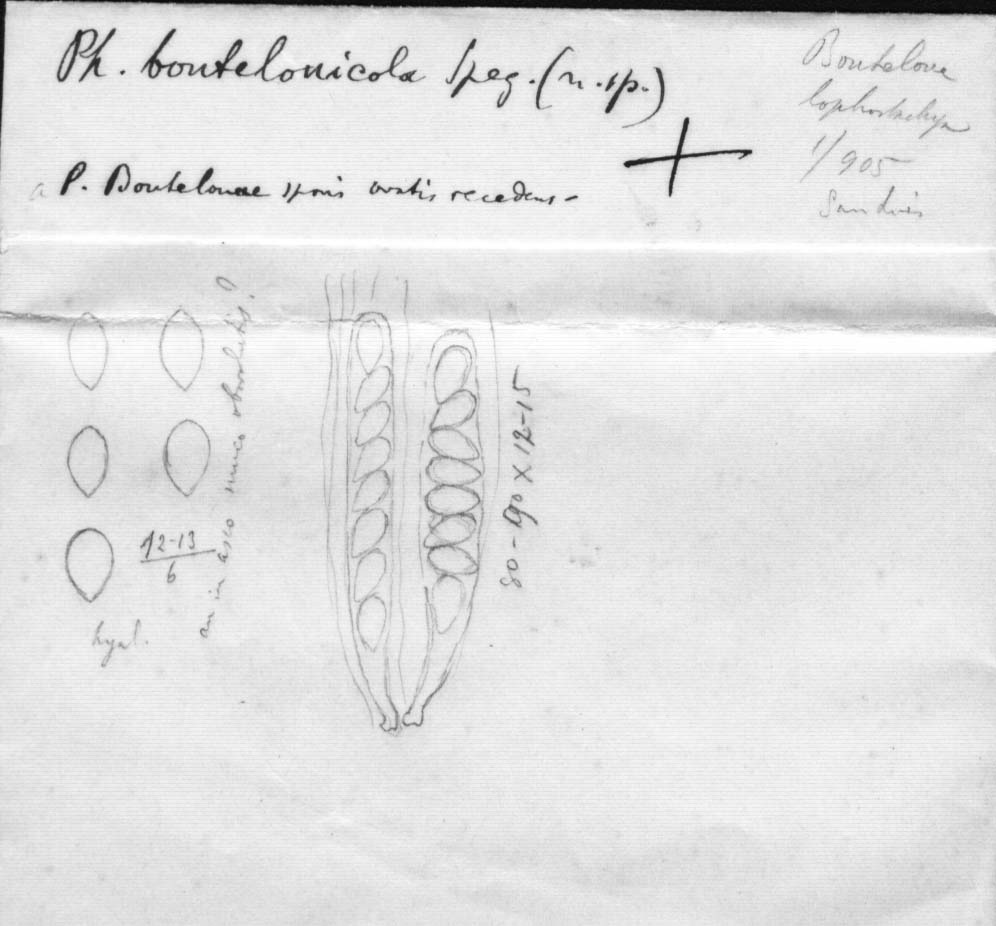 Ph. boutelouicola Speg. (n. sp.)
a P. Boutelouae sporis ovatis recedens -
Bouteloua
lophostachya
1/905
San Luis
an in asco nunc obvolutis?
12-13
6
hyal.
80-90 x 12-15